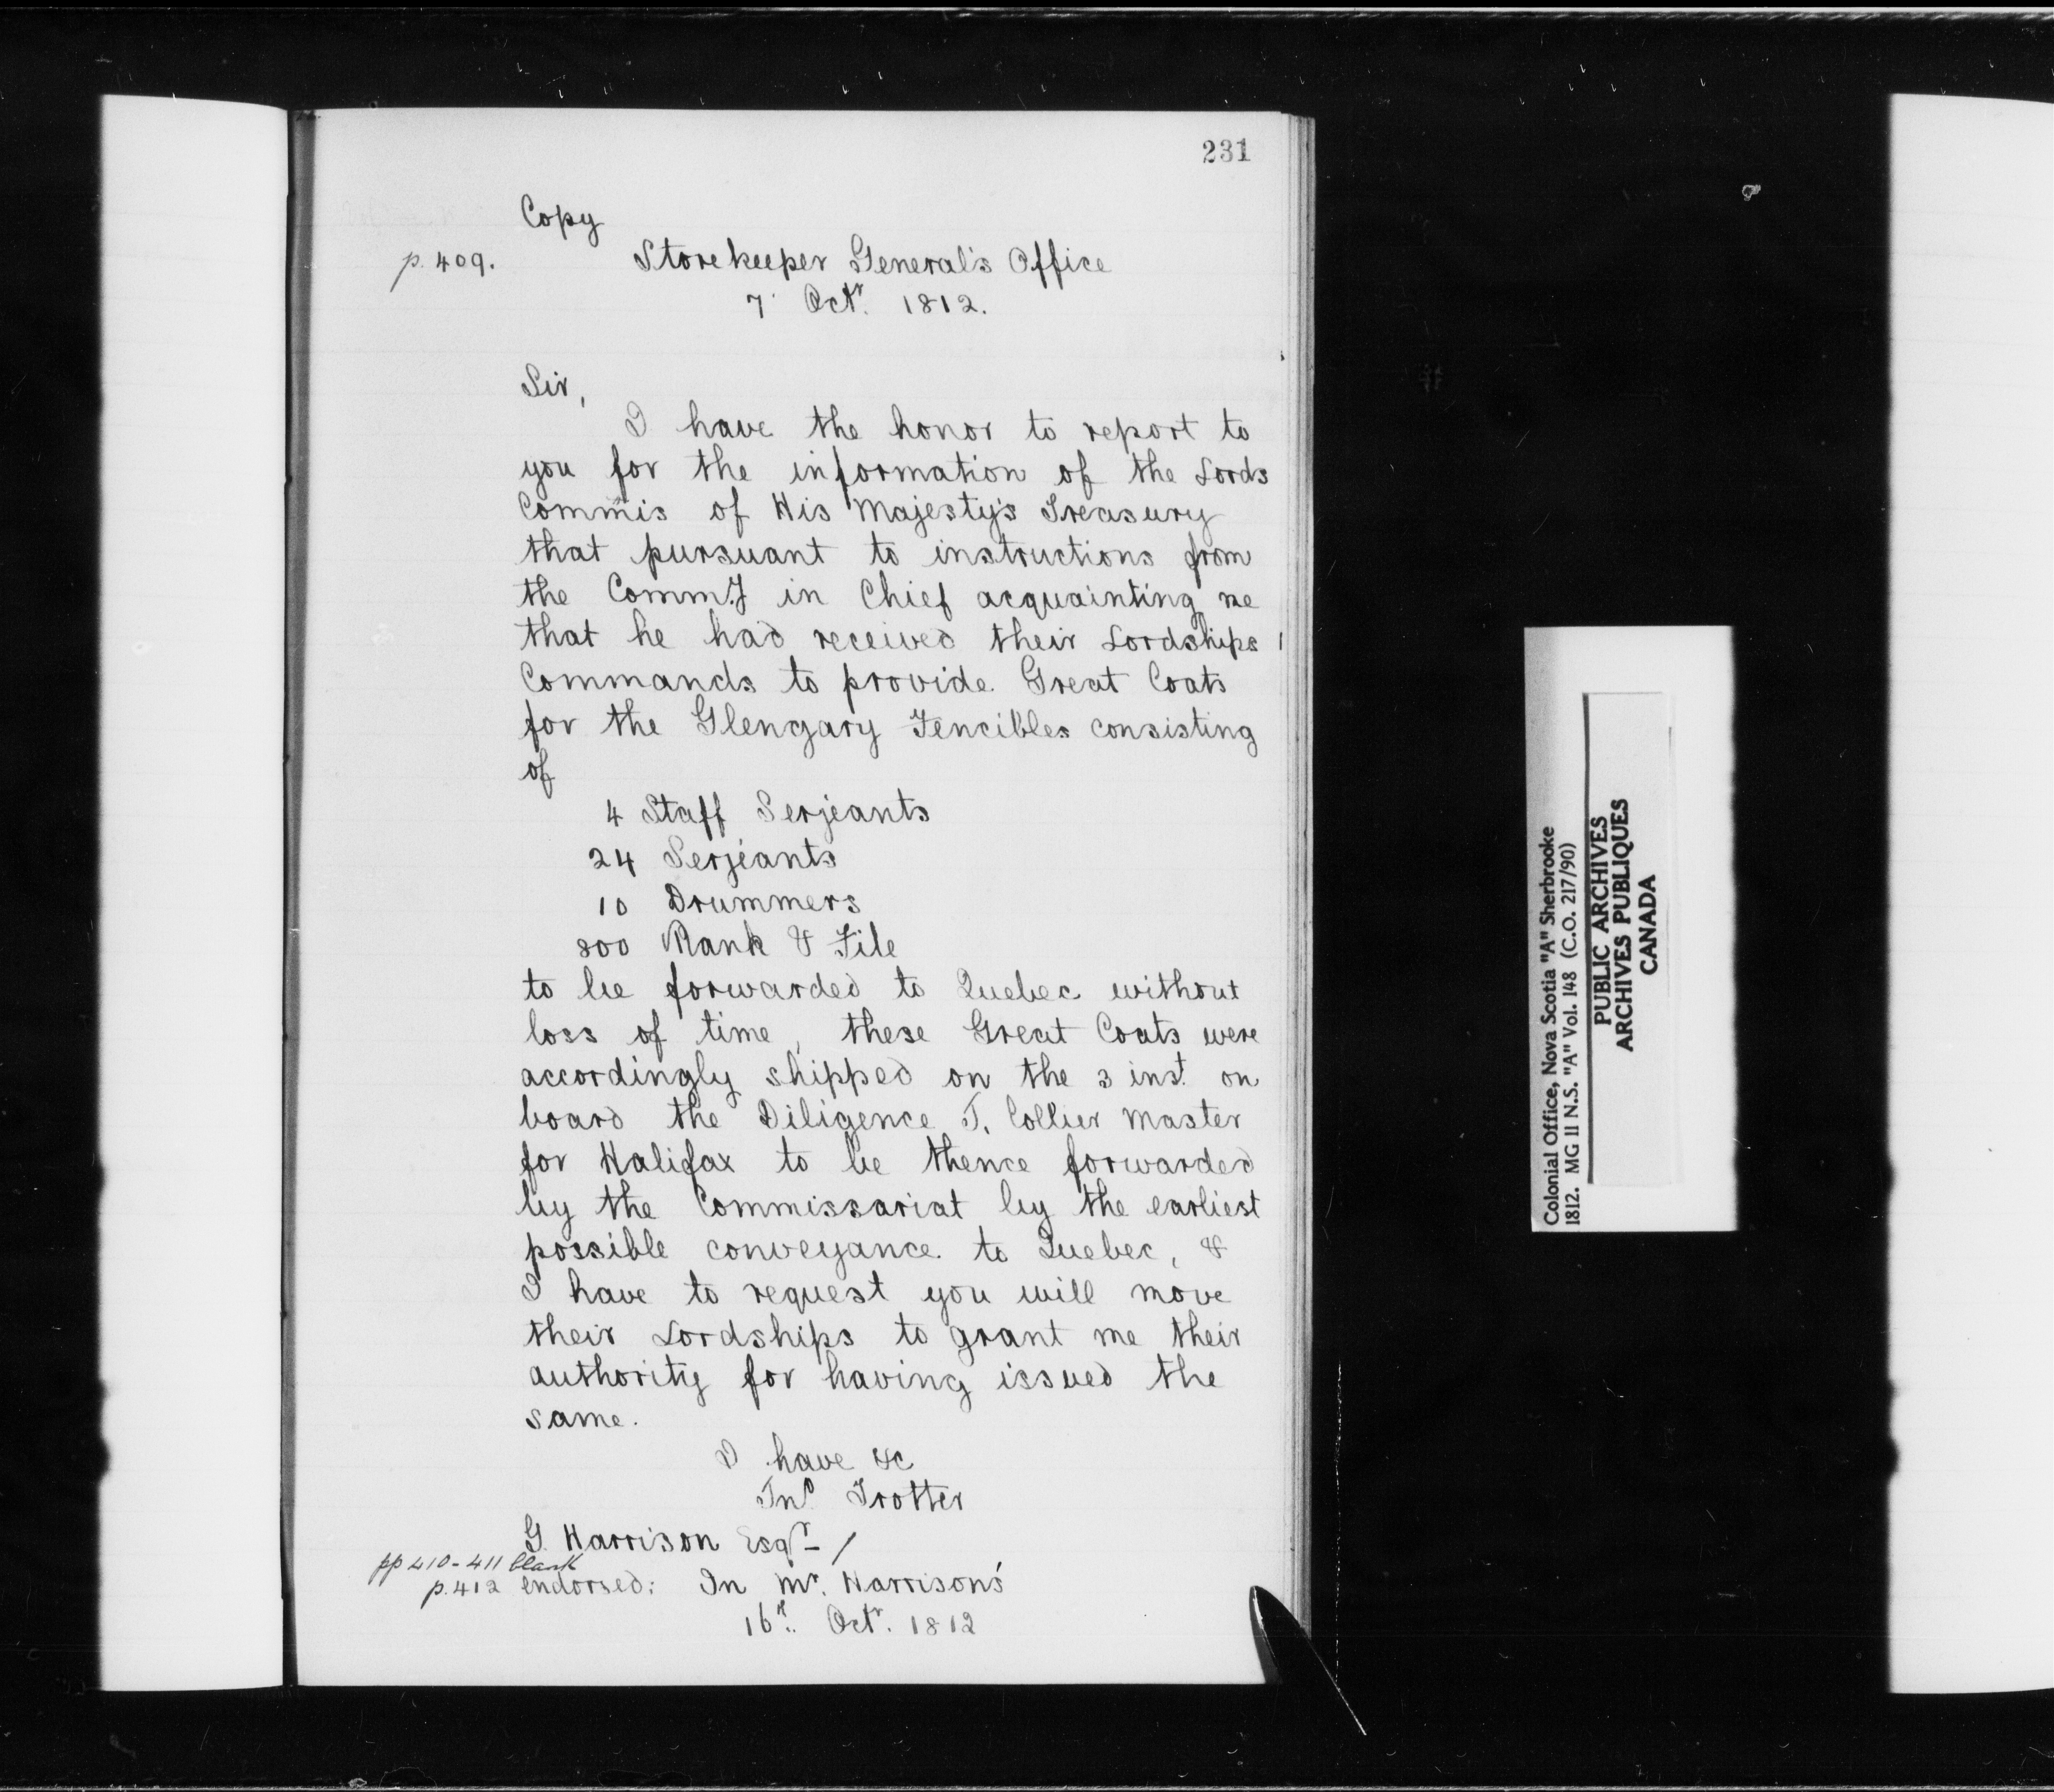 231
Copy
p. 409.
Storekeeper General's Office
7 Octr. 1812.
Sir,
I have the honor to report to
you for the information of the Lords
Commis of His Majesty's Treasury
that pursuant to instructions from
the Commr in Chief acquainting me
that he had received their Lordships
Commands to provide Great Coats
for the Glengary Fencibles consisting
of
4 Staff Serjeants
24 Serjeants
10 Drummers
800 Rank & File
to be forwarded to Quebec without
loss of time, these Great Coats were
accordingly shipped on the 3 inst. on
board the Diligence J. Collier Master
for Halifax to be thence forwarded
by the Commissariat by the earliest
possible conveyance to Quebec, &
I have to request you will move
their Lordships to grant me their
authority for having issued the
same.
I have &c
Jno Trotter
G. Harrison Esqr /
pp 410-411 blank
p. 412 endorsed: In Mr. Harrison's
16 Octr. 1812
Colonial Office, Nova Scotia "A" Sherbrooke
1812. MG 11 N.S. "A" Vol. 148 (C.O. 217/90)
PUBLIC ARCHIVES
ARCHIVES PUBLIQUES
CANADA